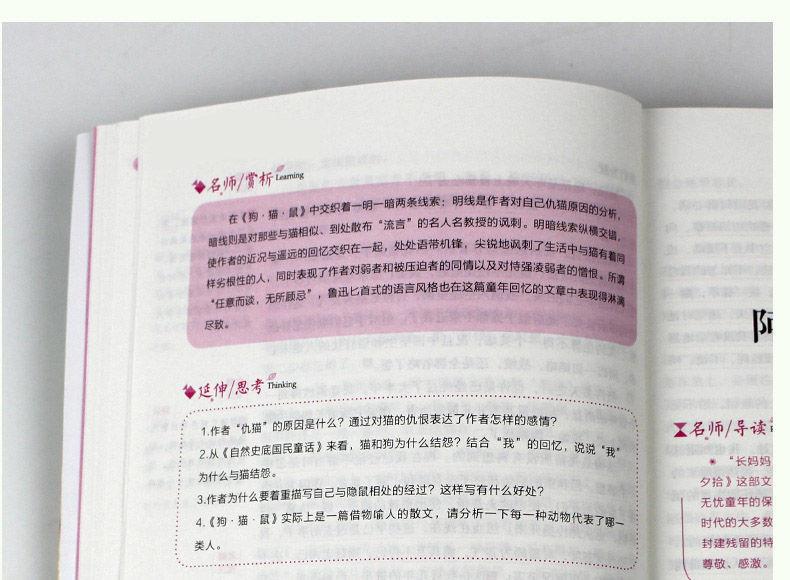 名师/赏析 Learning
在《狗·猫·鼠》中交织着一明一暗两条线索：明线是作者对自己仇猫原因的分析，
暗线则是对那些与猫相似、到处散布“流言”的名人名教授的讽刺。明暗线索纵横交错，
使作者的近况与遥远的回忆交织在一起，处处语带机锋，尖锐地讽刺了生活中与猫有着同
样劣根性的人，同时表现了作者对弱者和被压迫者的同情以及对恃强凌弱者的憎恨。所谓
“任意而谈，无所顾忌”，鲁迅匕首式的语言风格也在这篇童年回忆的文章中表现得淋漓
尽致。
延伸/思考 Thinking
1.作者“仇猫”的原因是什么？通过对猫的仇恨表达了作者怎样的感情？
2.从《自然史底国民童话》来看，猫和狗为什么结怨？结合“我”的回忆，说说“我”
为什么与猫结怨。
3.作者为什么要着重描写自己与隐鼠相处的经过？这样写有什么好处？
4.《狗·猫·鼠》实际上是一篇借物喻人的散文，请分析一下每一种动物代表了哪一
类人。
阿
名师/导读
“长妈妈
夕拾》这部文
无忧童年的保
时代的大多数
封建残留的特
尊敬、感激。